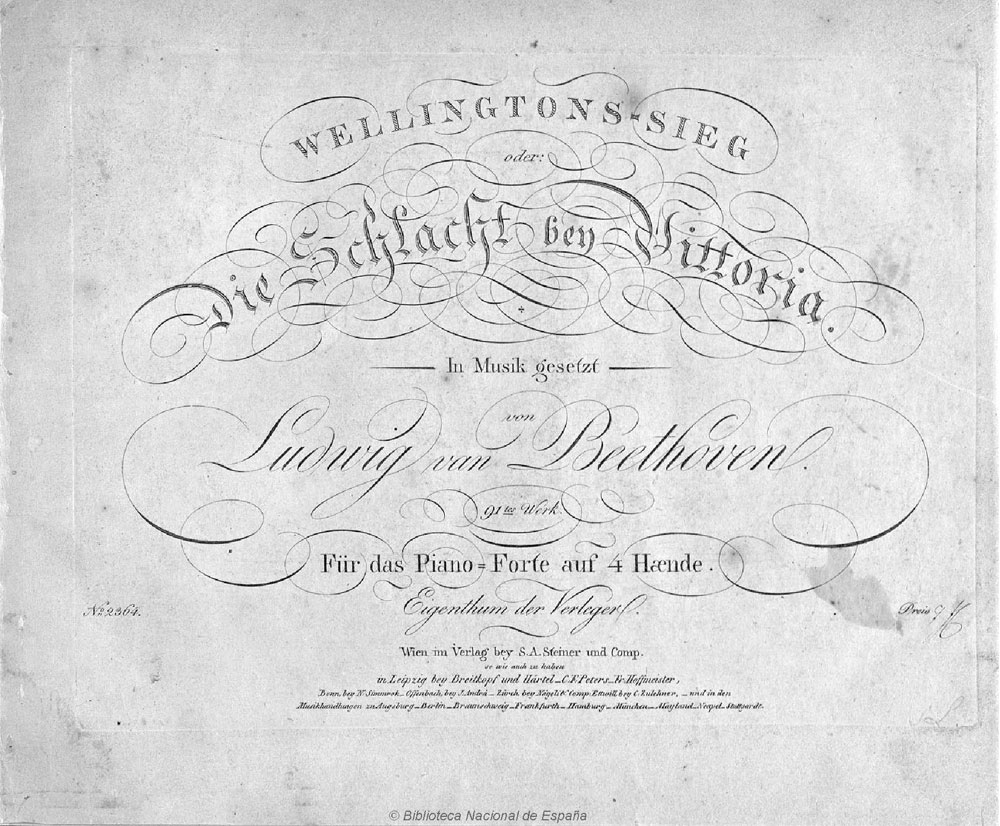 WELLINGTONS-SIEG
oder:
Die Schlacht bey Vittoria.
In Musik gesetzt
von
Ludwig van Beethoven.
91tes Werk.
Für das Piano=Forte auf 4 Hænde.
Eigenthum der Verleger.
No. 2364. Preis
Wien im Verlag bey S.A. Steiner und Comp.
so wie auch zu haben
in Leipzig bey Breitkopf und Härtel_C.F. Peters_Fr. Hoffmeister,
Bonn bey N. Simmrok_Offenbach, bey J. André_Zürch bey Nägeli & Comp. bey C. Zulehner, _und in den
Musikhandlungen zu Augsburg_Berlin_Braunschweig_Frankfurth_Hamburg_München_Mayland_Neapel_Stuttgardt.
© Biblioteca Nacional de España